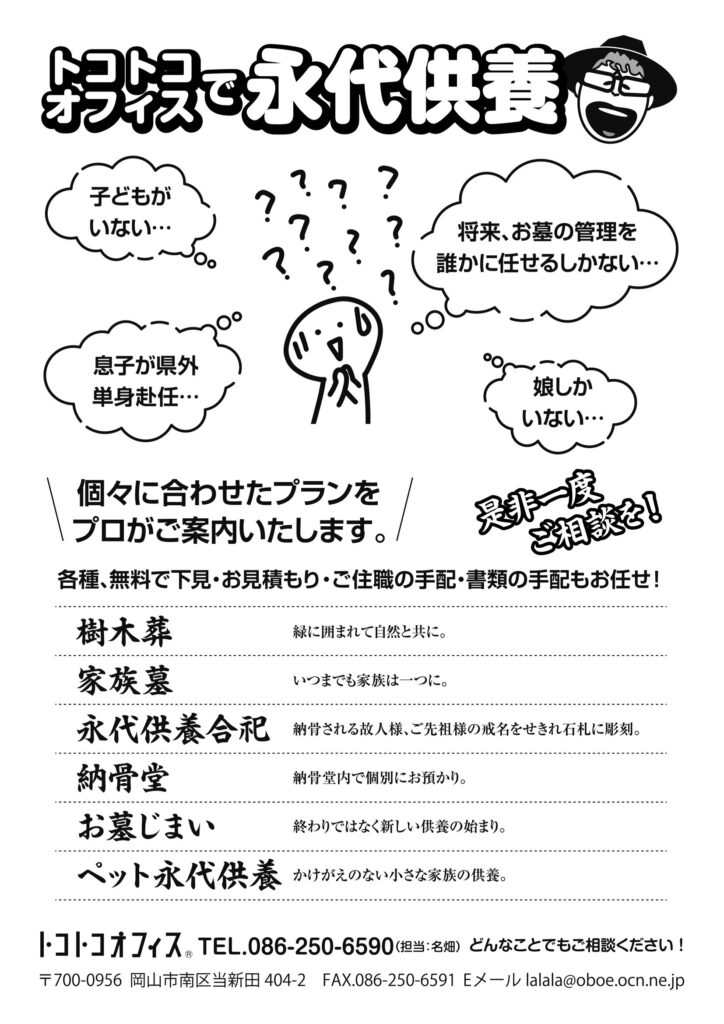 トコトコ
オフィスで永代供養
子どもが
いない…
? ? ? ? ? ? ? ? ? ?
将来、お墓の管理を
誰かに任せるしかない…
息子が県外
単身赴任…
娘しか
いない…
個々に合わせたプランを
プロがご案内いたします。
是非一度
ご相談を!
各種、無料で下見・お見積もり・ご住職の手配・書類の手配もお任せ!
樹木葬 緑に囲まれて自然と共に。
家族墓 いつまでも家族は一つに。
永代供養合祀 納骨される故人様、ご先祖様の戒名をせきれ石札に彫刻。
納骨堂 納骨堂内で個別にお預かり。
お墓じまい 終わりではなく新しい供養の始まり。
ペット永代供養 かけがえのない小さな家族の供養。
トコトコオフィス® TEL.086-250-6590(担当:名畑) どんなことでもご相談ください!
〒700-0956 岡山市南区当新田404-2 FAX.086-250-6591 Eメール lalala@oboe.ocn.ne.jp